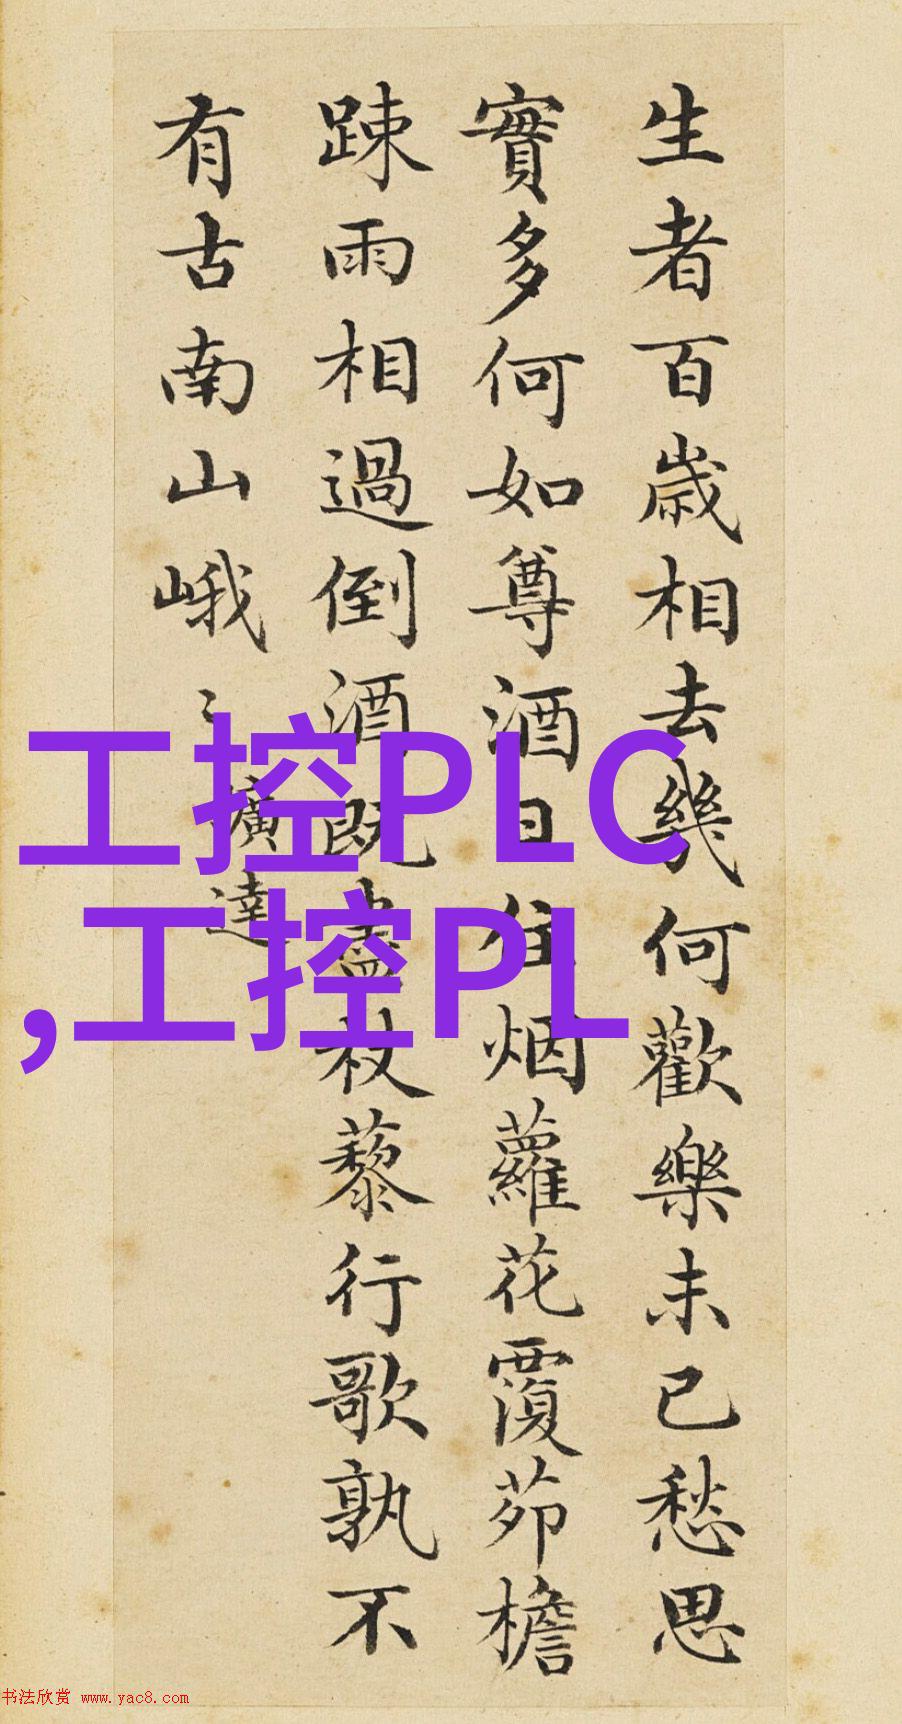 生者百歲相去幾何歡樂未已愁思
實多何如尊酒日往烟蘿花覆茆檐
踈雨相過倒酒既盡杖藜行歌孰不
有古南山峨〻
曠達
工控PLC
,工控PL
书法欣赏 www.yac8.com